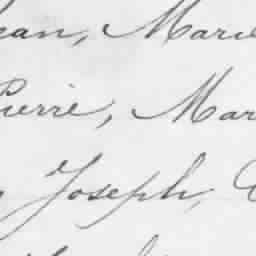 Jean, Marie
Pierre, Mar
Joseph,